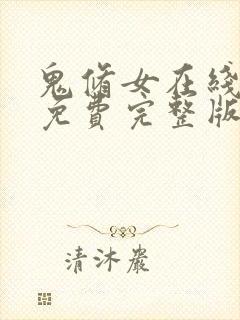 鬼脩女在綫
免費完整版
清沐嚴